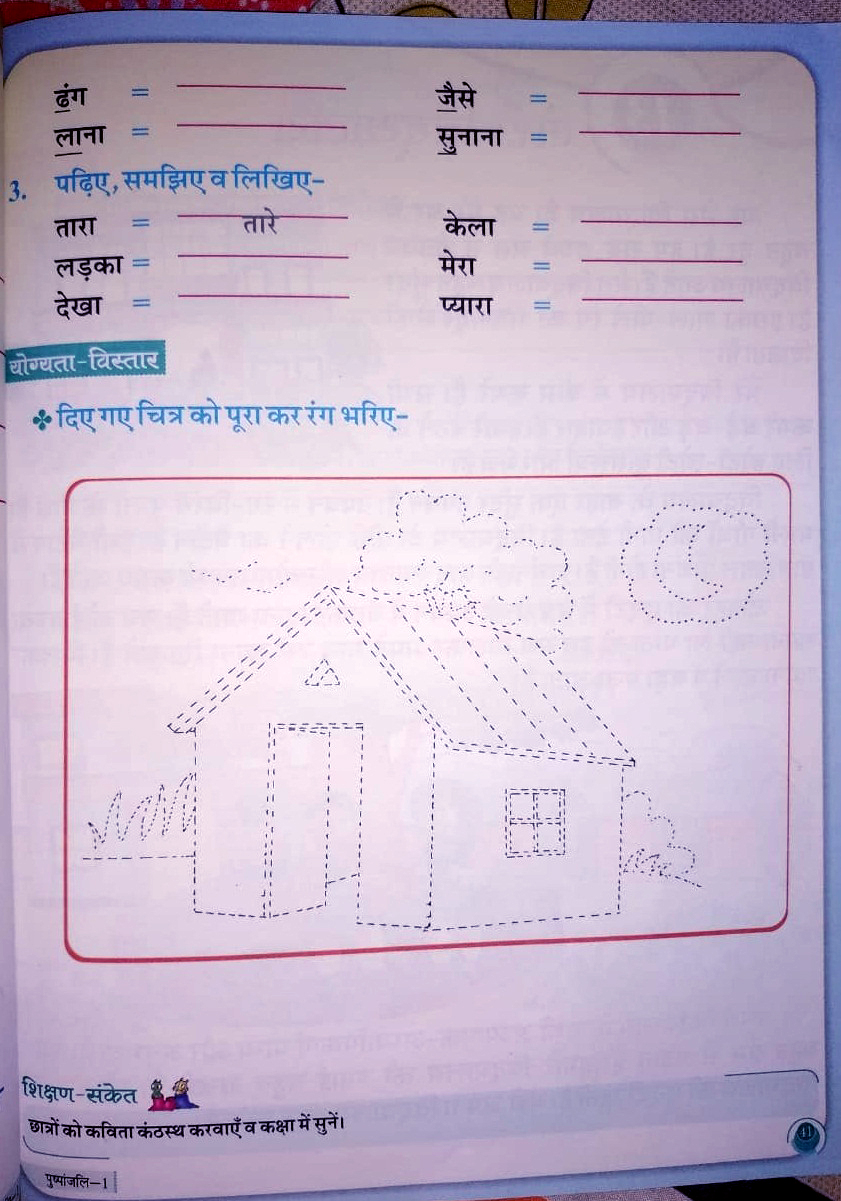 ढंग = ________ जैसे = ________
लाना = ________ सुनाना = ________
3. पढ़िए, समझिए व लिखिए-
तारा = तारे केला = ________
लड़का = ________ मेरा = ________
देखा = ________ प्यारा = ________
योग्यता-विस्तार
❖ दिए गए चित्र को पूरा कर रंग भरिए-
शिक्षण-संकेत
छात्रों को कविता कंठस्थ करवाएँ व कक्षा में सुनें।
41
पुष्पांजलि-1